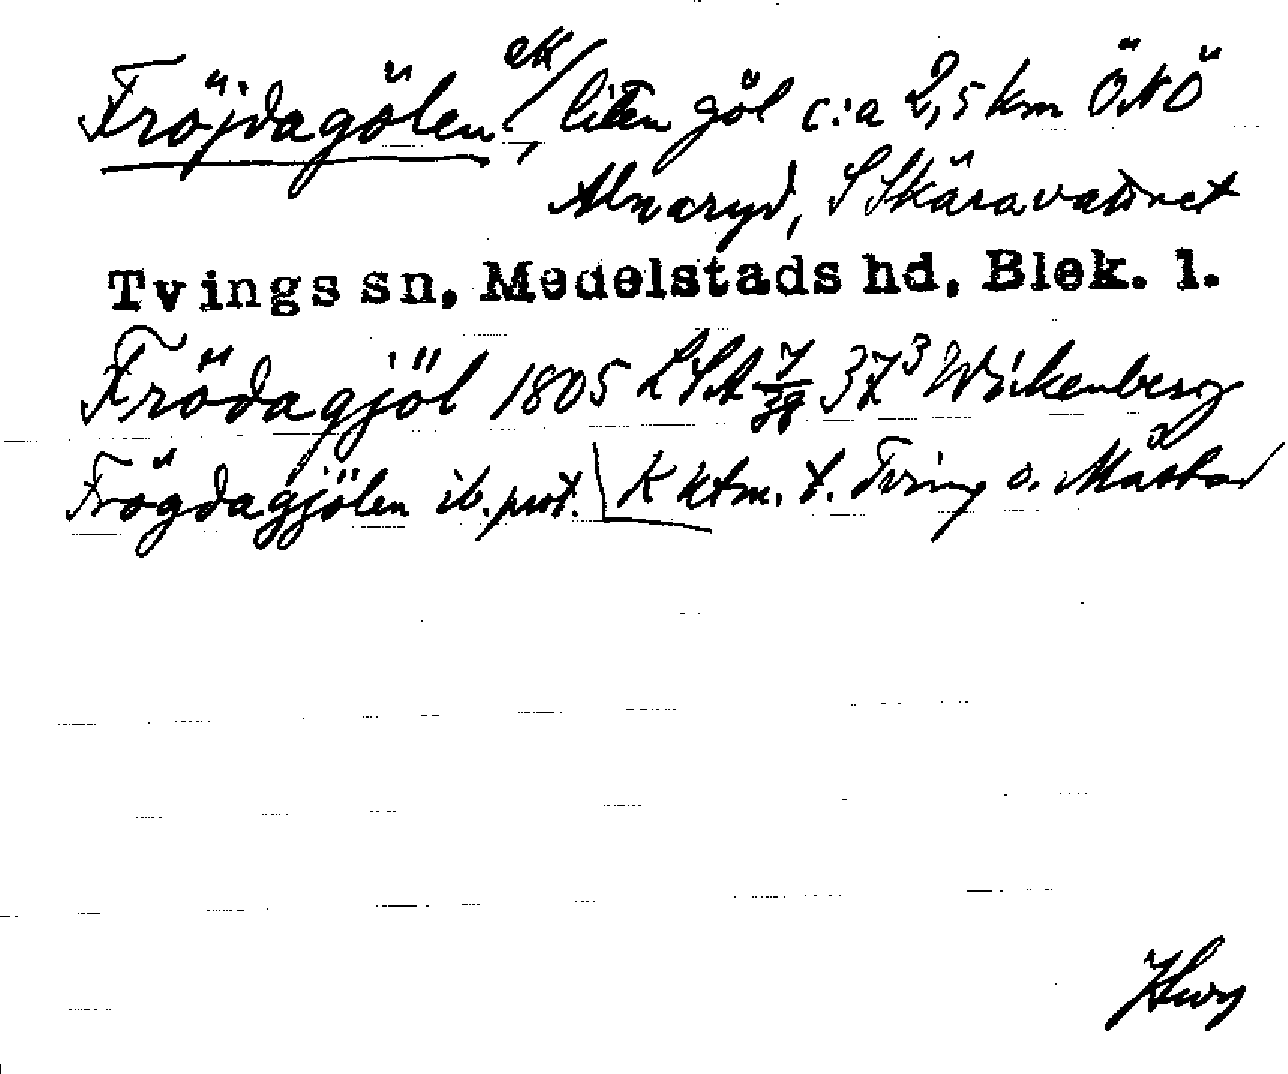 Fröjdagölen ek/, liten göl c:a 2,5 km ÖNÖ
Alnaryd, S Skäravattnet
Tvings sn, Medelstads hd, Blek. l.
Frödagjöl 1805 LSA 37³ Wickenberg
Frögdagjölen ib. prot. K ktm. t. Tving o. Måstad